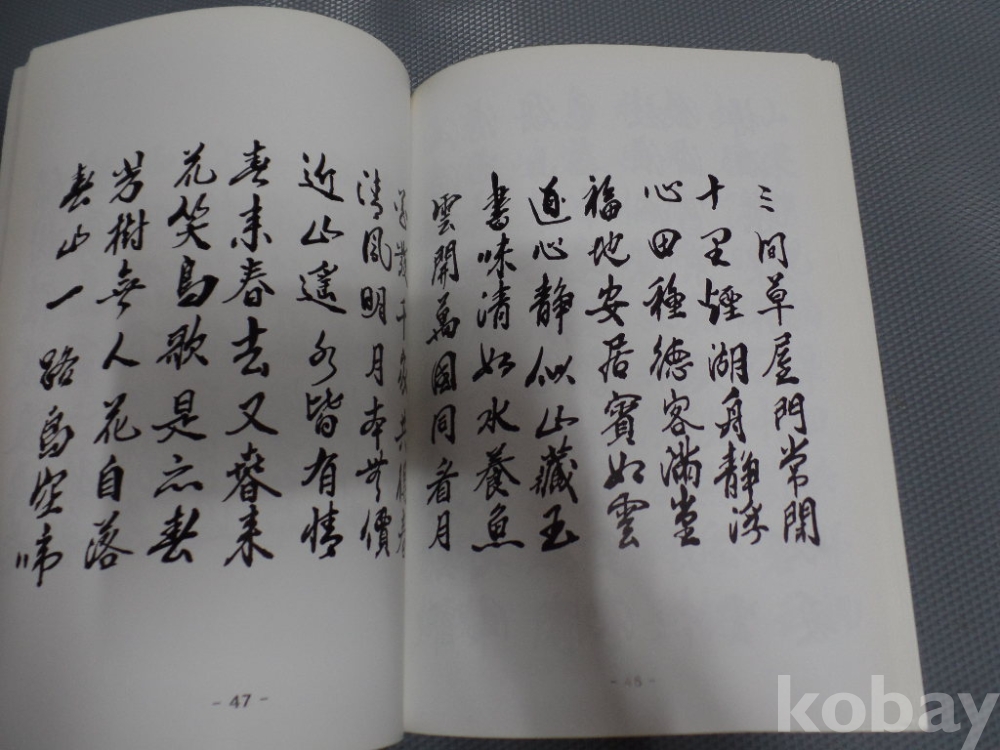 三間草屋門常閑
十里煙湖舟靜浮
心田種德客滿堂
福地安居賓如雲
道心静似山藏玉
書味清如水養魚
雲開萬國同看月
千家共得春
清風明月本無價
近山遙水皆有情
春来春去又春来
花笑鳥歌是亦春
芳樹無人花自落
春山一路鳥空啼
- 47 -
kobay